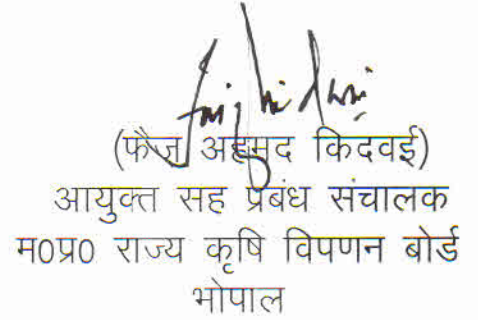 (फैज अहमद किदवई)
आयुक्त सह प्रबंध संचालक
म0प्र0 राज्य कृषि विपणन बोर्ड
भोपाल